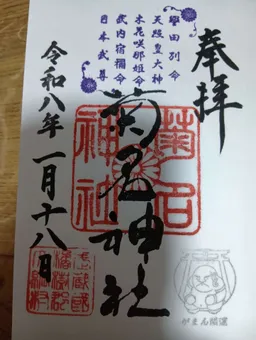 奉拝
誉田別命
天照皇大神
木花咲耶姫命
武内宿禰命
日本武尊
菊名神社
菊名
神社
令和八年一月十八日
がまん開運